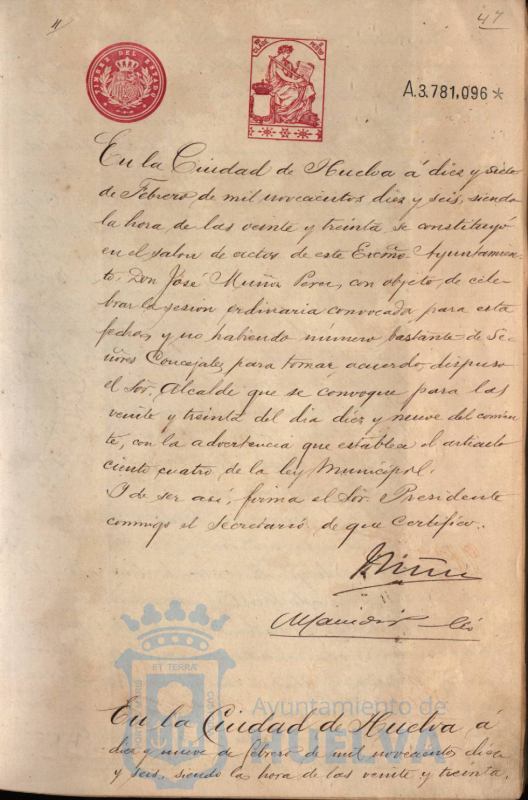 47
TIMBRE DEL ESTADO
A.3.781,096*
En la Ciudad de Huelva á diez y siete
de Febrero de mil novecientos diez y seis, siendo
la hora de las veinte y treinta se constituyó
en el salon de actos de este Excmo. Ayuntamien-
to, Don José Muñoz Perez, con objeto de cele-
brar la sesion ordinaria convocada para esta
fecha, y no habiendo número bastante de Se-
ñores Concejales para tomar acuerdo, dispuso
el Sor. Alcalde que se convoque para las
veinte y treinta del dia diez y nueve del corrien-
te, con la advertencia que establece el articulo
ciento cuatro de la ley Municipal.
Y de ser asi, firma el Sor. Presidente
conmigo el Secretario de que certifico.
ET TERRA
Ayuntamiento de
HUELVA
En la Ciudad de Huelva á
diez y nueve de febrero de mil novecientos diez
y seis, siendo la hora de las veinte y treinta,